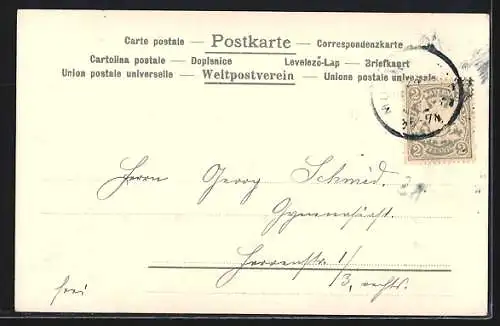 Carte postale — Postkarte — Correspondenzkarte
Cartolina postale — Dopisnice Levelező-Lap — Briefkaart
Union postale universelle — Weltpostverein — Unione postale universale
2 2
2 2
Herrn Georg Schmid.
Herrenstr. 1/
/3, rechts.
frei